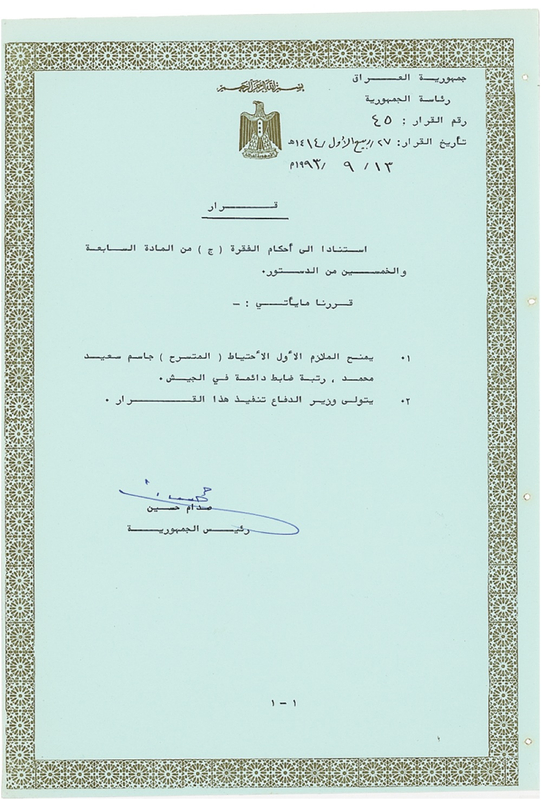 بسم الله الرحمن الرحيم
جمهورية العراق
رئاسة الجمهورية
رقم القرار : ٤٥
تأريخ القرار: ٢٧ /ربيع الأول/ ١٤١٤هـ
١٣ / ٩ /١٩٩٣م
قرار
استنادا الى أحكام الفقرة ( ج ) من المادة السابعة
والخمسين من الدستور.
قررنا مايأتي : -
١. يمنح الملازم الأول الأحتياط ( المتسرح ) جاسم سعيد
محمد ، رتبة ضابط دائمة في الجيش .
٢. يتولى وزير الدفاع تنفيذ هذا القرار .
صدام حسين
رئيس الجمهورية
١ - ١